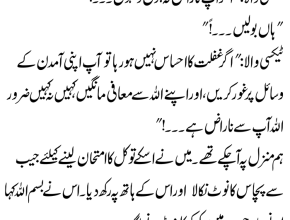 "ہاں بولیں ۔۔۔!"
ٹیکسی والا: "اگر غفلت کا احساس نہیں ہو رہا تو آپ اپنی آمدن کے
وسائل پر غور کریں، اور اپنے اللہ سے معافی مانگیں کہیں نہ کہیں ضرور
اللہ آپ سے ناراض ہے ۔۔۔!"
ہم منزل پہ آ چکے تھے۔ میں نے اسکے توکل کا امتحان لینے کیلئے جیب
سے پچاس کا نوٹ نکالا اور اس کے ہاتھ پہ رکھ دیا۔ اس نے بسم اللہ کہا